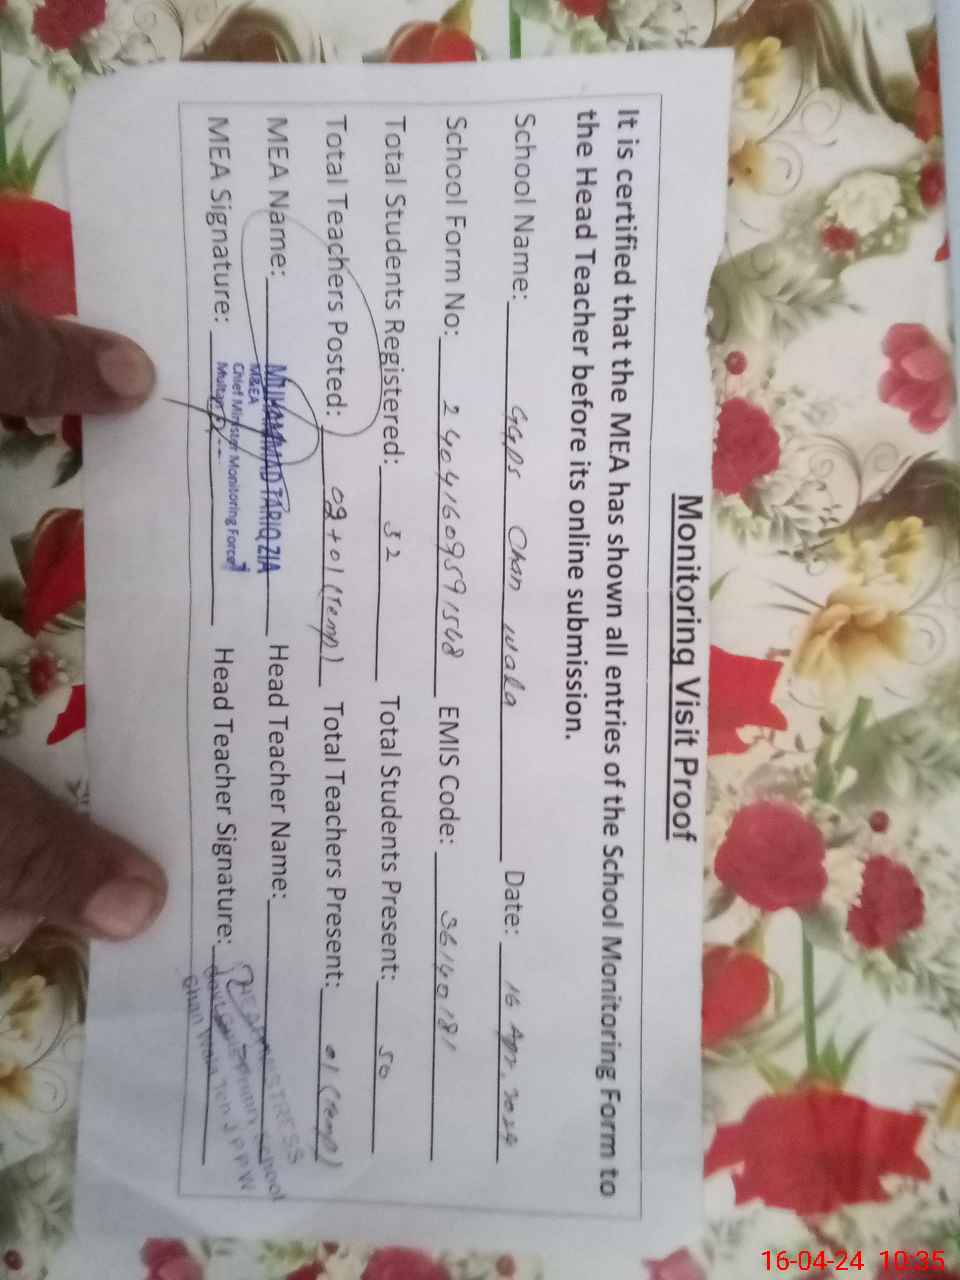 Monitoring Visit Proof
It is certified that the MEA has shown all entries of the School Monitoring Form to
the Head Teacher before its online submission.
School Name: GGPS Chan wala Date: 16 Apr, 2024
School Form No: 24041609591548 EMIS Code: 36140181
Total Students Registered: 52 Total Students Present: 50
Total Teachers Posted: 02+01 (Temp) Total Teachers Present: 01 (Temp)
MEA Name: MUHAMMAD TARIQ ZIA Head Teacher Name:
M&EA
Chief Minister Monitoring Force
MEA Signature: Multan Head Teacher Signature:
HEADMISTRESS
School
Chan Wala
16-04-24 10:35